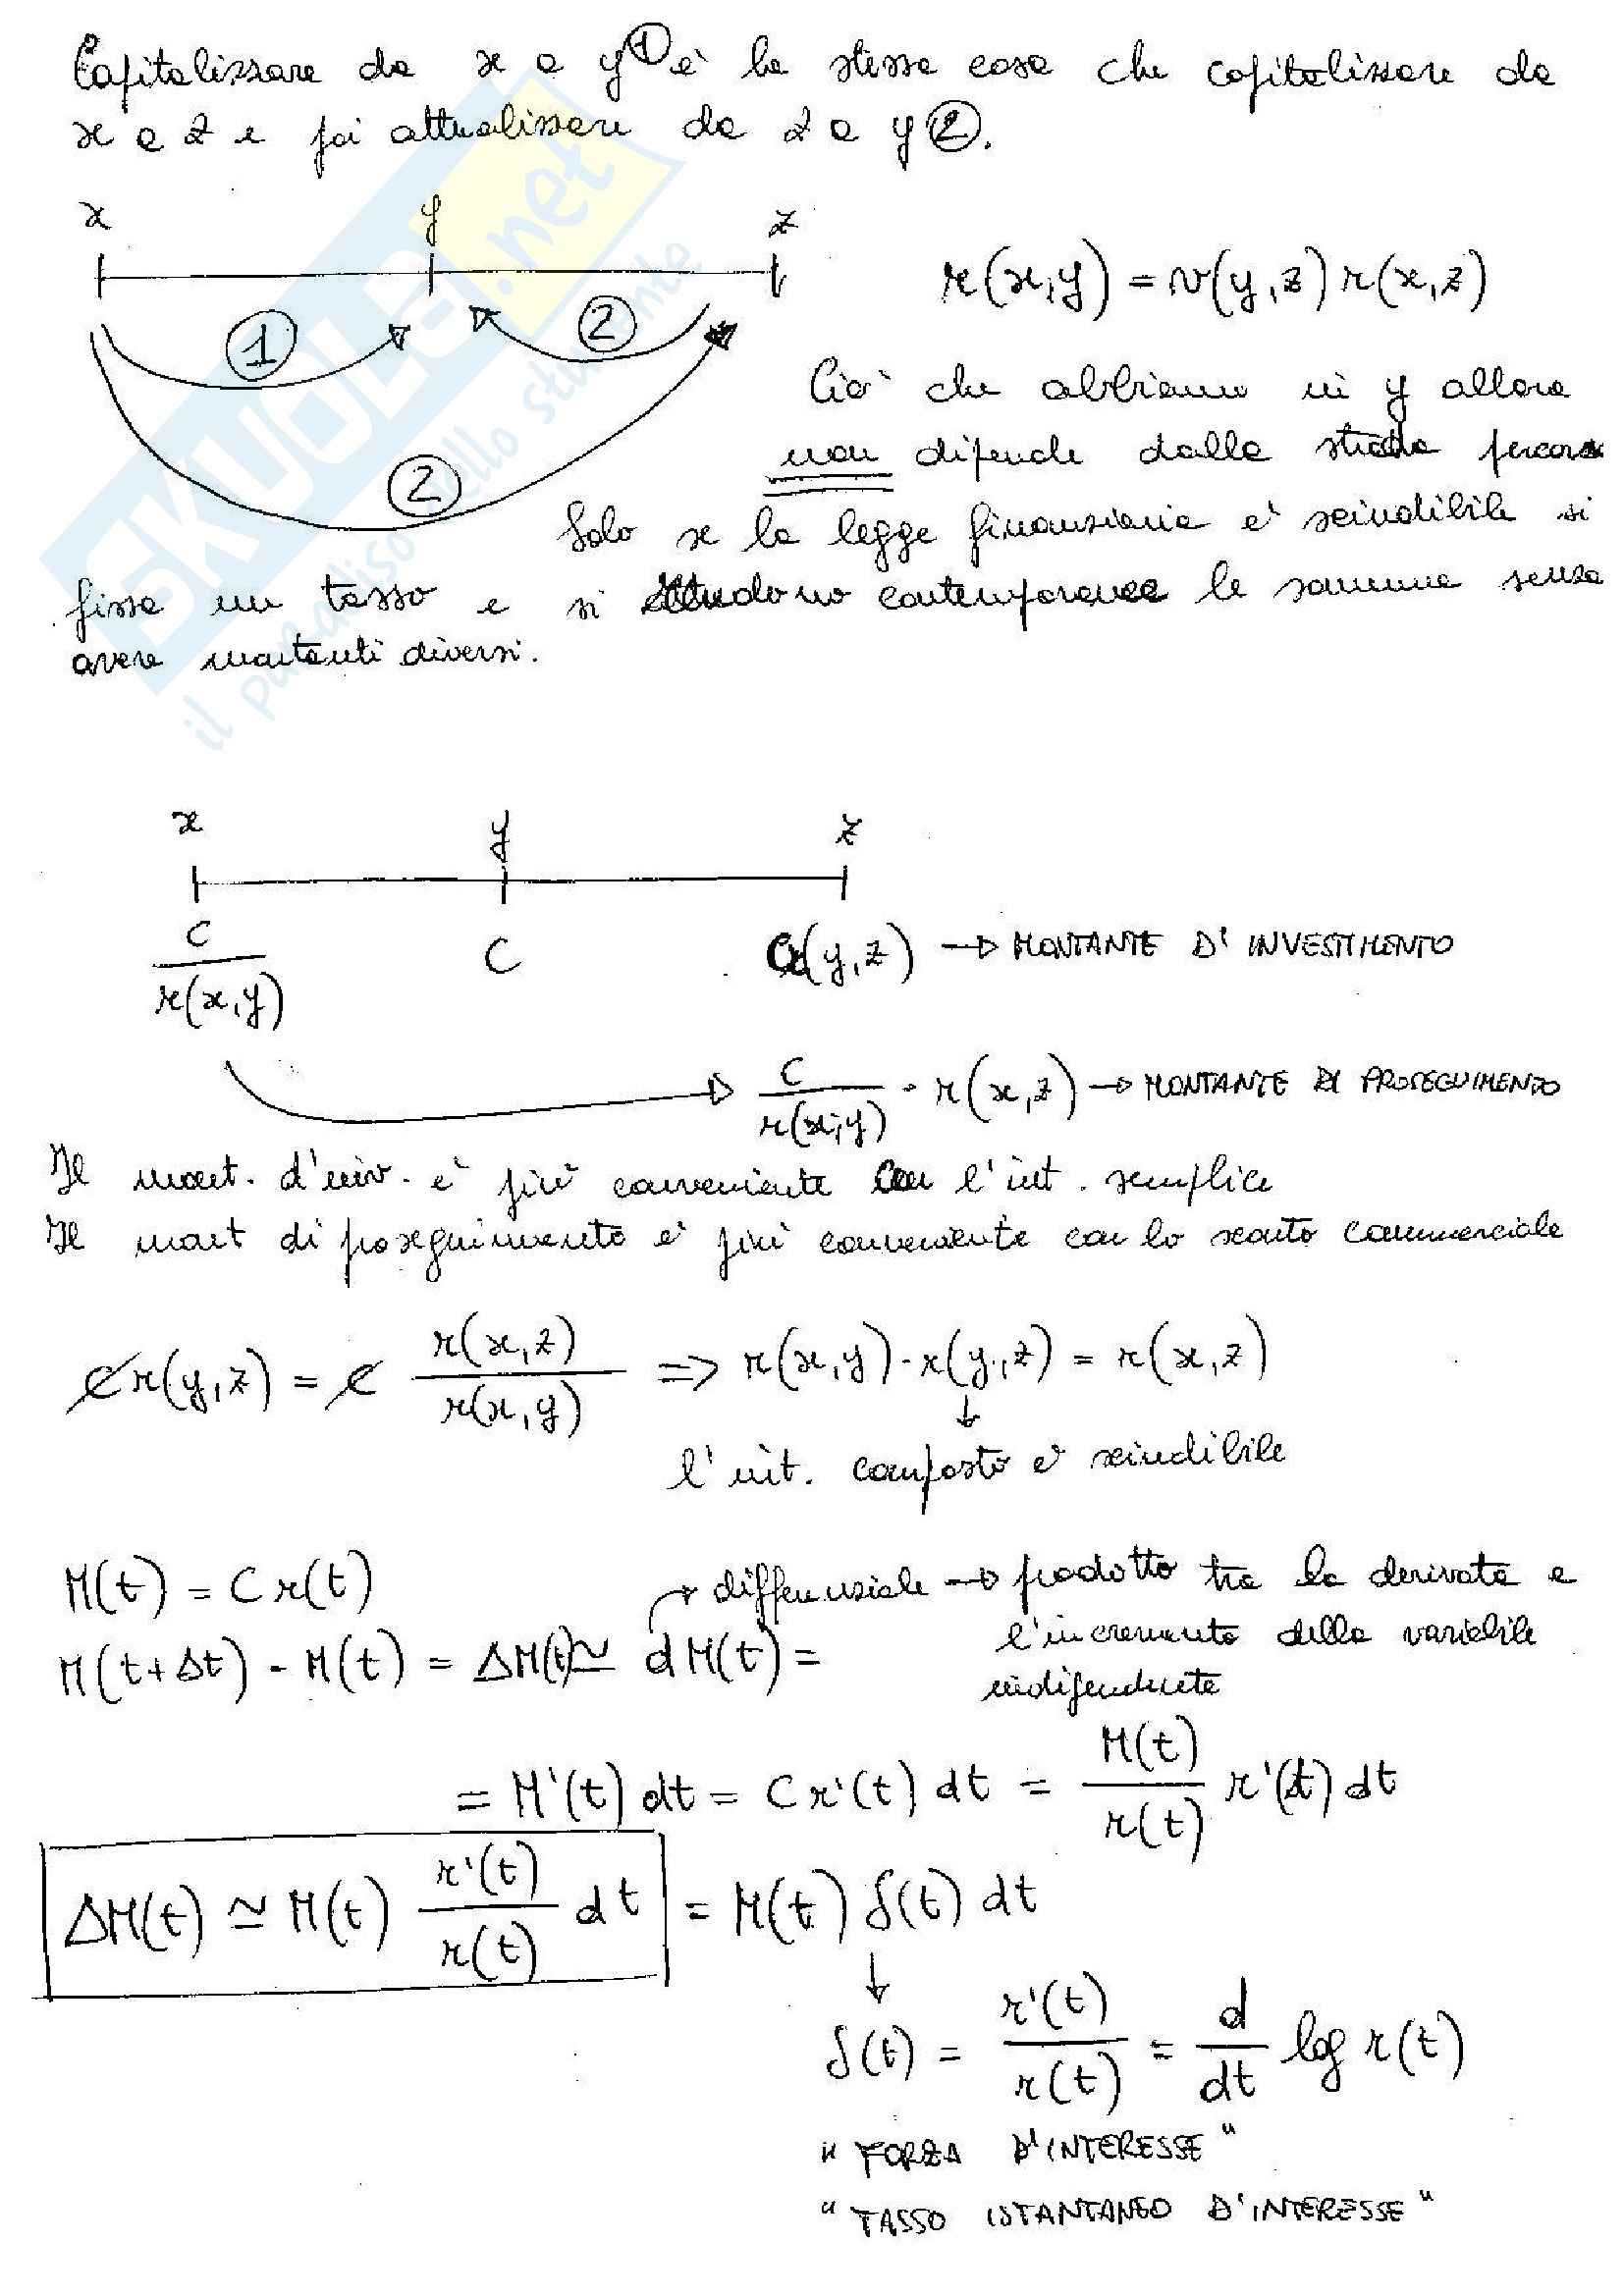 Capitalizzare da x a y① è la stessa cosa che capitalizzare da
x a z e poi attualizzare da z a y②.
x y z
r(x,y) = v(y,z) r(x,z)
① ②
Ciò che abbiamo in y allora
non dipende dalla strada percorsa
②
Solo se la legge finanziaria è scindibile si
fissa un tasso e si contemporanee le somme senza
avere montanti diversi.
SKUOLA.net
il paradiso dello studente
x y z
C/r(x,y) C Cr(y,z) → MONTANTE D'INVESTIMENTO
C/r(x,y) · r(x,z) → MONTANTE DI PROSEGUIMENTO
Il mont. d'inv. è più conveniente con l'int. semplice
Il mont di proseguimento è più conveniente con lo sconto commerciale
C r(y,z) = C r(x,z)/r(x,y) => r(x,y) · r(y,z) = r(x,z)
↓
l'int. composto è scindibile
M(t) = C r(t)
differenziale → prodotto tra la derivata e
l'incremento della variabile
indipendente
M(t+Δt) - M(t) = ΔM(t) ≃ dM(t) =
= M'(t) dt = C r'(t) dt = M(t)/r(t) r'(t) dt
ΔM(t) ≃ M(t) r'(t)/r(t) dt = M(t) δ(t) dt
↓
δ(t) = r'(t)/r(t) = d/dt log r(t)
"FORZA D'INTERESSE"
"TASSO ISTANTANEO D'INTERESSE"